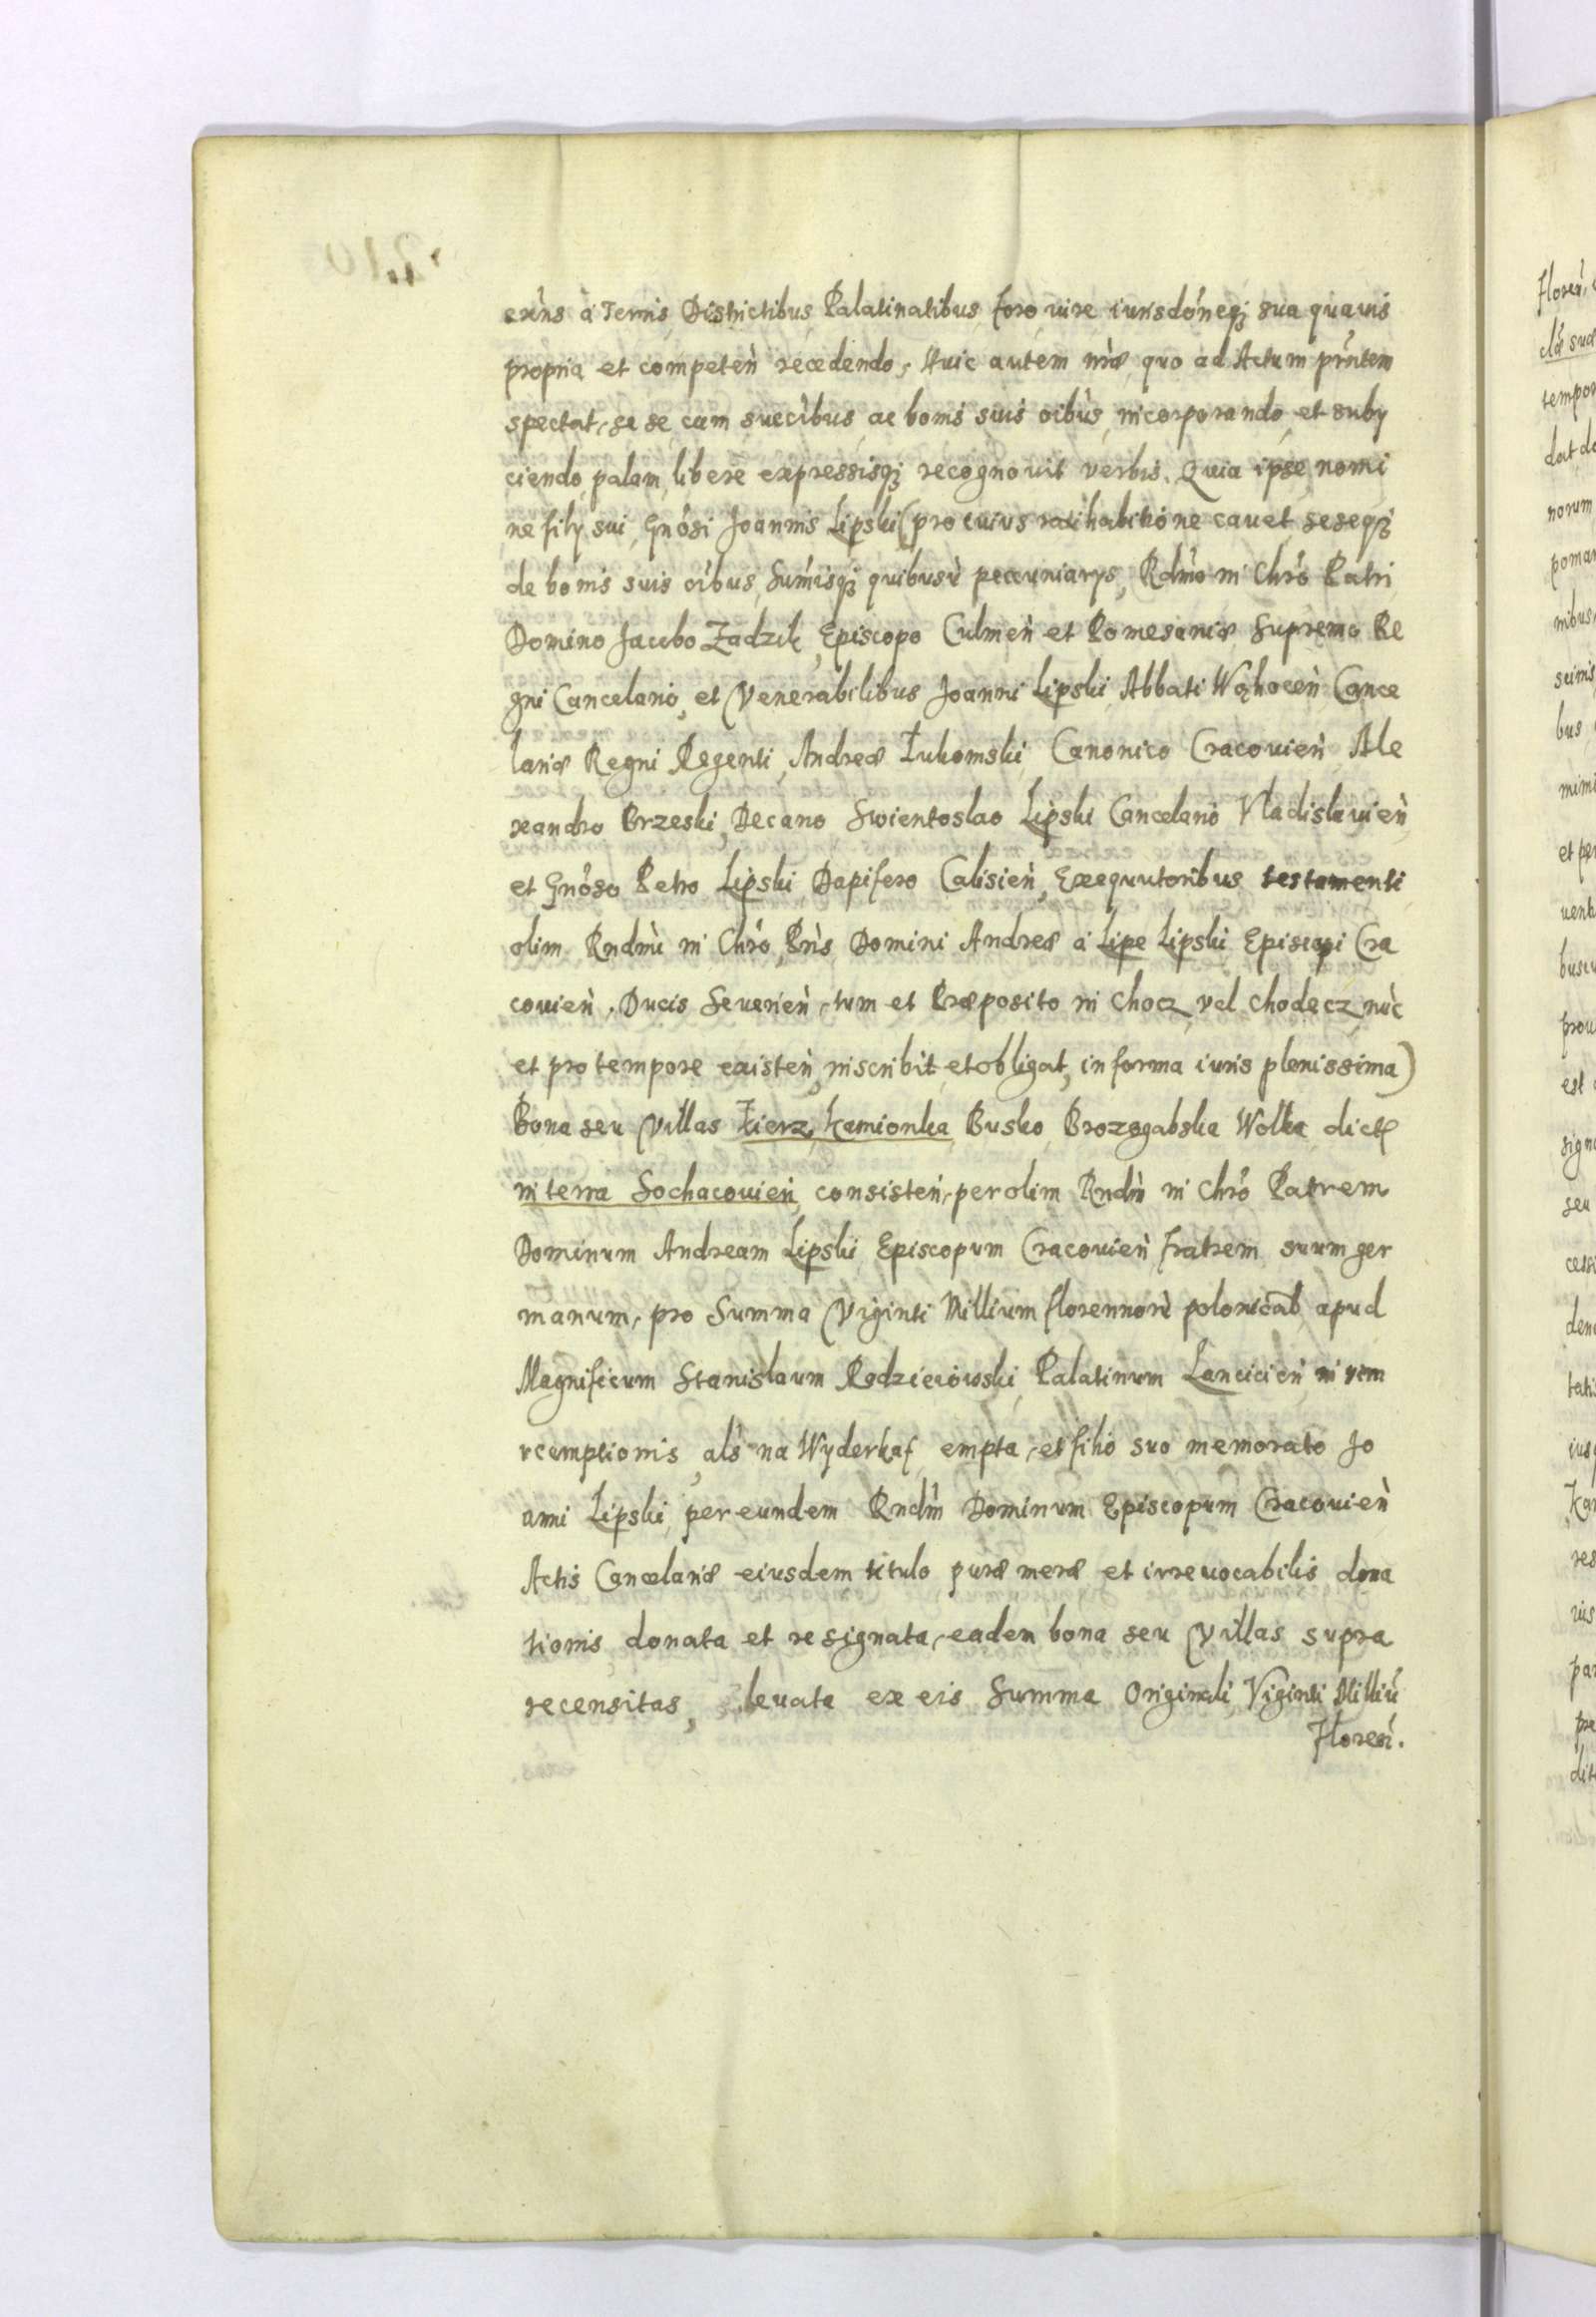 exńs à Terris Districtibus Palatinatibus foro, iure iurisdóneq; sua quauis
propria et competeń recedendo, Huic autem nrӕ, quo ad Actum prńtem
spectat, se se cum succibus ac bonis suis oibùs, incorporando, et suby
ciendo, palam, libere expressisq; recognouit verbis. Quia ipse, nomi
ne fily sui, Gnósi Joannis Lipski (pro cuius ratihabitióne cauet, seseq;
de bonis suis oibus, Sum̃isq; quibusù peccuniarys, Rdmo in Chro Patri
Domino Jacobo Zadzik, Episcopo Culmeń et Pomesaniæ Supremo Re
gni Cancelario, et Venerabilibus Joanni Lipski Abbati Wąhoceń Cance
lariæ Regni Regenti, Andreæ Łukomski Canonico Cracouień Ale
xandro Brzeski, Decano Swientoslao Lipski Cancelario Vladislauień
et Gnóso Petro Lipski Dapifero Calisień, Exequutoribus testamenti
olim Rndmi in Chro Pris Domini Andreæ à Lipe Lipski Episcopi Cra
couień, Ducis Seuerień, tum et Præposito in Chocz vel Chodecz nùc
et pro tempore existeń, inscribit et obligat, in forma iuris plenissima)
Bona seu Villas Łierz, Kamionka Busko, Brozogabska Wolka dict
in terra Sochacouień consisteń, per olim Rndm in Chro Patrem
Dominum Andream Lipski Episcopum Cracouień Fratrem suum ger
manum, pro Summa Viginti Millium florennorù polonical apud
Magnificum Stanislaum Radzieiowski Palatinum Lancicień in vim
reemptionis, als na Wyderkaf empta, et filio suo memorato Jo
anni Lipski, per eundem Rndm Dominum Episcopum Cracouień
Actis Cancelariæ eiusdem titulo puræ meræ et irreuocabilis dona
tionis donata et resignata, eadem bona seu Villas supra
recensitas, leuata ex eis Summa Originali Viginti Milliù
Floreń.